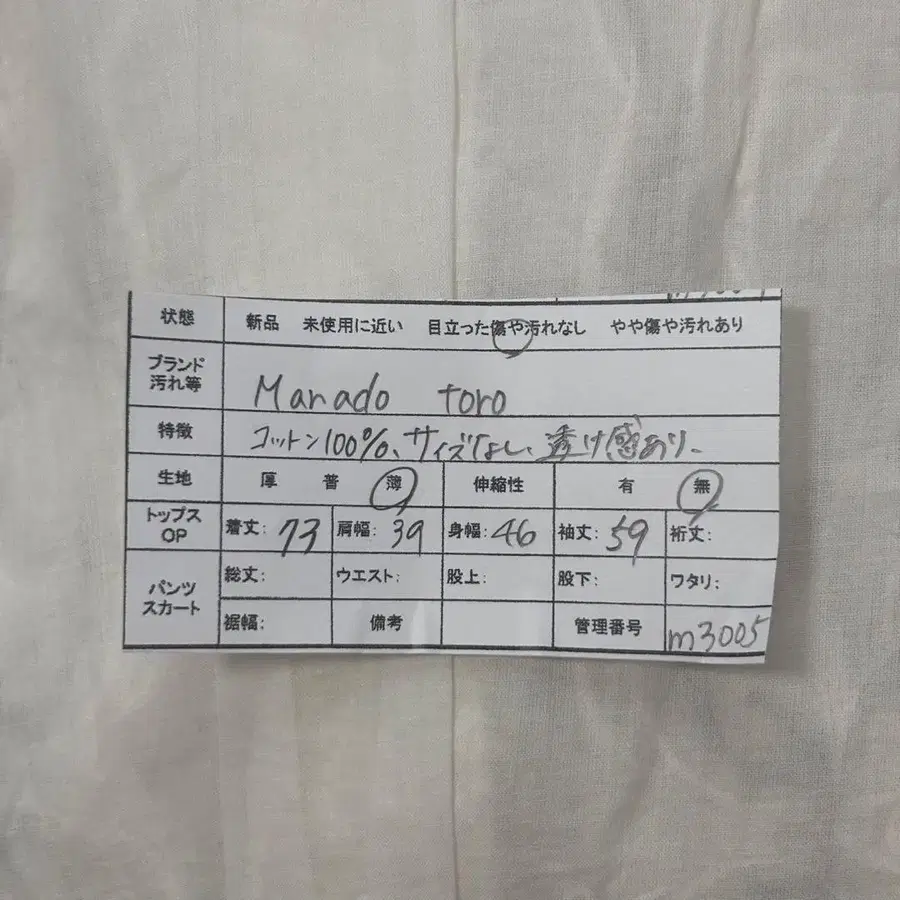 状態 新品 未使用に近い 目立った傷や汚れなし やや傷や汚れあり
ブランド
汚れ等
Manado toro
特徴 コットン100%、サイズなし、透け感あり、
生地 厚 普 薄 伸縮性 有 無
トップス
OP
着丈: 73 肩幅: 39 身幅: 46 袖丈: 59 裄丈:
パンツ
スカート
総丈: ウエスト: 股上: 股下: ワタリ:
裾幅: 備考 管理番号 m3005